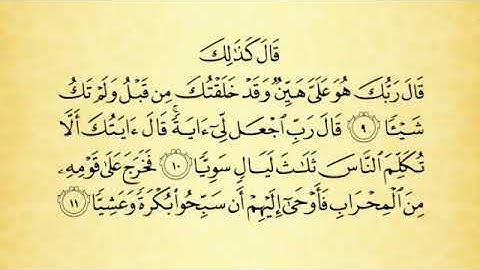 قَالَ كَذَٰلِكَ
قَالَ رَبُّكَ هُوَ عَلَىَّ هَيِّنٌ وَقَدْ خَلَقْتُكَ مِن قَبْلُ وَلَمْ تَكُ
شَيْـًٔا ٩ قَالَ رَبِّ ٱجْعَل لِّىٓ ءَايَةً ۚ قَالَ ءَايَتُكَ أَلَّا
تُكَلِّمَ ٱلنَّاسَ ثَلَـٰثَ لَيَالٍ سَوِيًّا ١٠ فَخَرَجَ عَلَىٰ قَوْمِهِۦ
مِنَ ٱلْمِحْرَابِ فَأَوْحَىٰٓ إِلَيْهِمْ أَن سَبِّحُوا۟ بُكْرَةً وَعَشِيًّا ١١